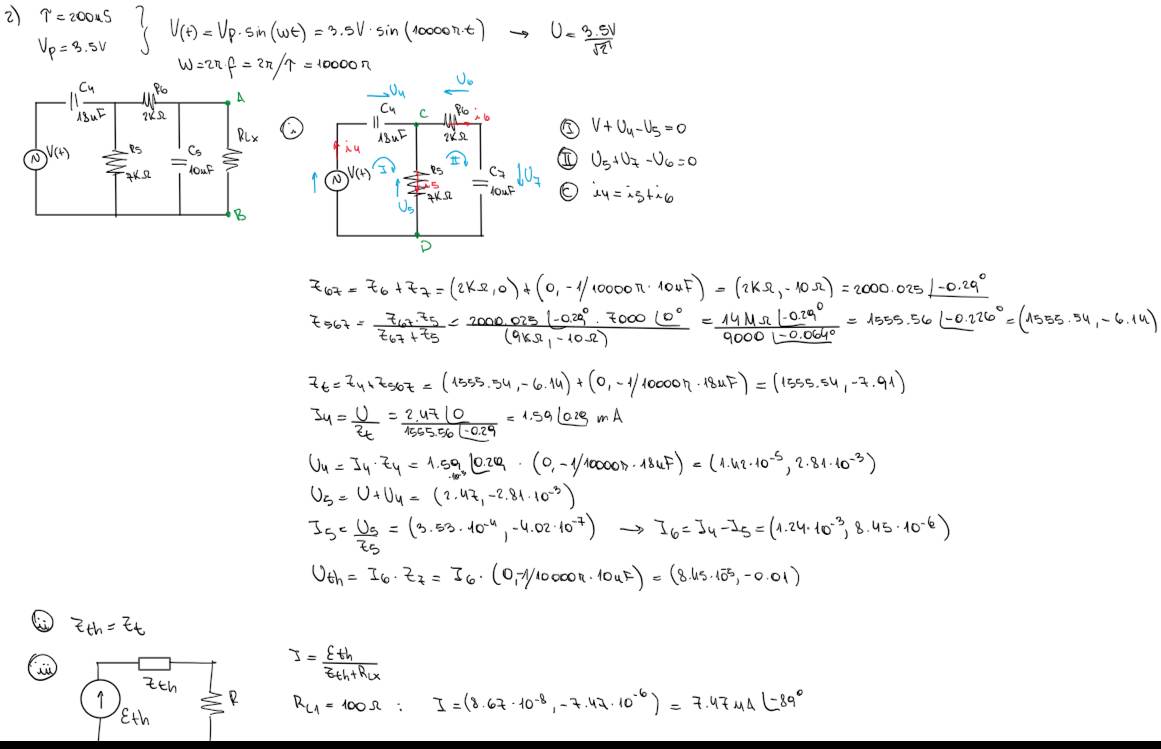 2) T = 200uS
Vp = 3.5V
V(t) = Vp · sin (wt) = 3.5V · sin (10000π·t) → U = 3.5V/√2
W = 2π·f = 2π/T = 10000π
C4
18uF
R6
2KΩ
A
V(t)
R5
7KΩ
C5
10uF
RLx
B
i
U4
U6
C4
18uF
C
R6
i6
2KΩ
i4
V(t)
I
II
R5
i5
7KΩ
U5
C7
10uF
U7
D
I V + U4 - U5 = 0
II U5 + U7 - U6 = 0
C i4 = i5 + i6
Z67 = Z6 + Z7 = (2KΩ, 0) + (0, -1/10000π · 10uF) = (2KΩ, -10Ω) = 2000.025 ∠-0.29°
Z567 = Z67·Z5 / Z67+Z5 = 2000.025 ∠-0.29° · 7000 ∠0° / (9KΩ, -10Ω) = 14MΩ ∠-0.29° / 9000 ∠-0.064° = 1555.56 ∠-0.226° = (1555.54, -6.14)
Zt = Z4 + Z567 = (1555.54, -6.14) + (0, -1/10000π · 18uF) = (1555.54, -7.91)
I4 = U/Zt = 2.47 ∠0 / 1555.56 ∠-0.29 = 1.59 ∠0.29 mA
U4 = I4 · Z4 = 1.59·10⁻³ ∠0.29 · (0, -1/10000π · 18uF) = (1.42·10⁻⁵, 2.81·10⁻³)
U5 = U + U4 = (2.47, -2.81·10⁻³)
I5 = U5/Z5 = (3.53·10⁻⁴, -4.02·10⁻⁷) → I6 = I4 - I5 = (1.24·10⁻³, 8.45·10⁻⁶)
Uth = I6 · Z7 = I6 · (0, -1/10000π · 10uF) = (8.45·10⁻⁵, -0.01)
ii Zth = Zt
iii
Zth
εth
R
I = εth / Zth + RLx
RL1 = 100Ω : I = (8.67·10⁻⁸, -7.47·10⁻⁶) = 7.47uA ∠-89°